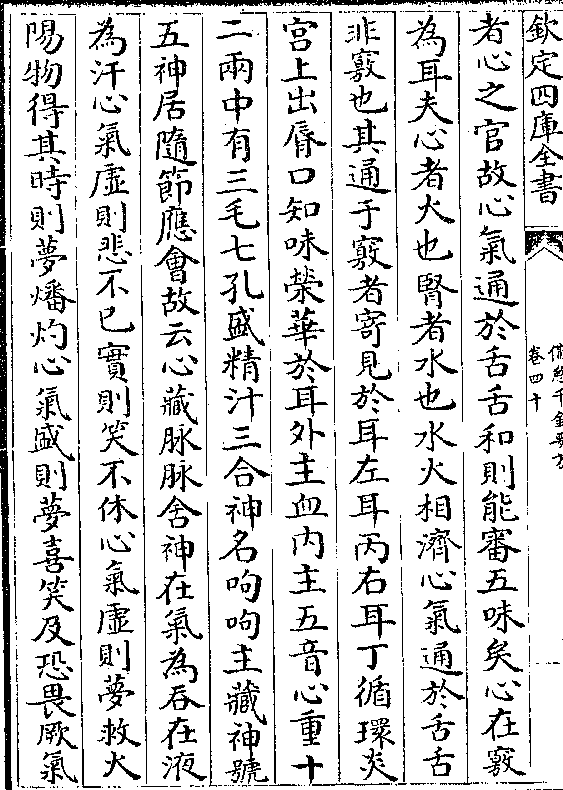 欽定四庫全書
備急千金要方
卷四十
者心之官故心氣通於舌舌和則能審五味矣心在竅
為耳夫心者火也腎者水也水火相濟心氣通於舌舌
非竅也其通于竅者寄見於耳左耳丙右耳丁循環炎
宫上出脣口知味榮華於耳外主血内主五音心重十
二兩中有三毛七孔盛精汁三合神名呴呴主藏神號
五神居隨節應會故云心藏脉脉舍神在氣為吞在液
為汗心氣虛則悲不已實則笑不休心氣虛則夢救火
陽物得其時則夢燔灼心氣盛則夢喜笑及恐畏厥氣